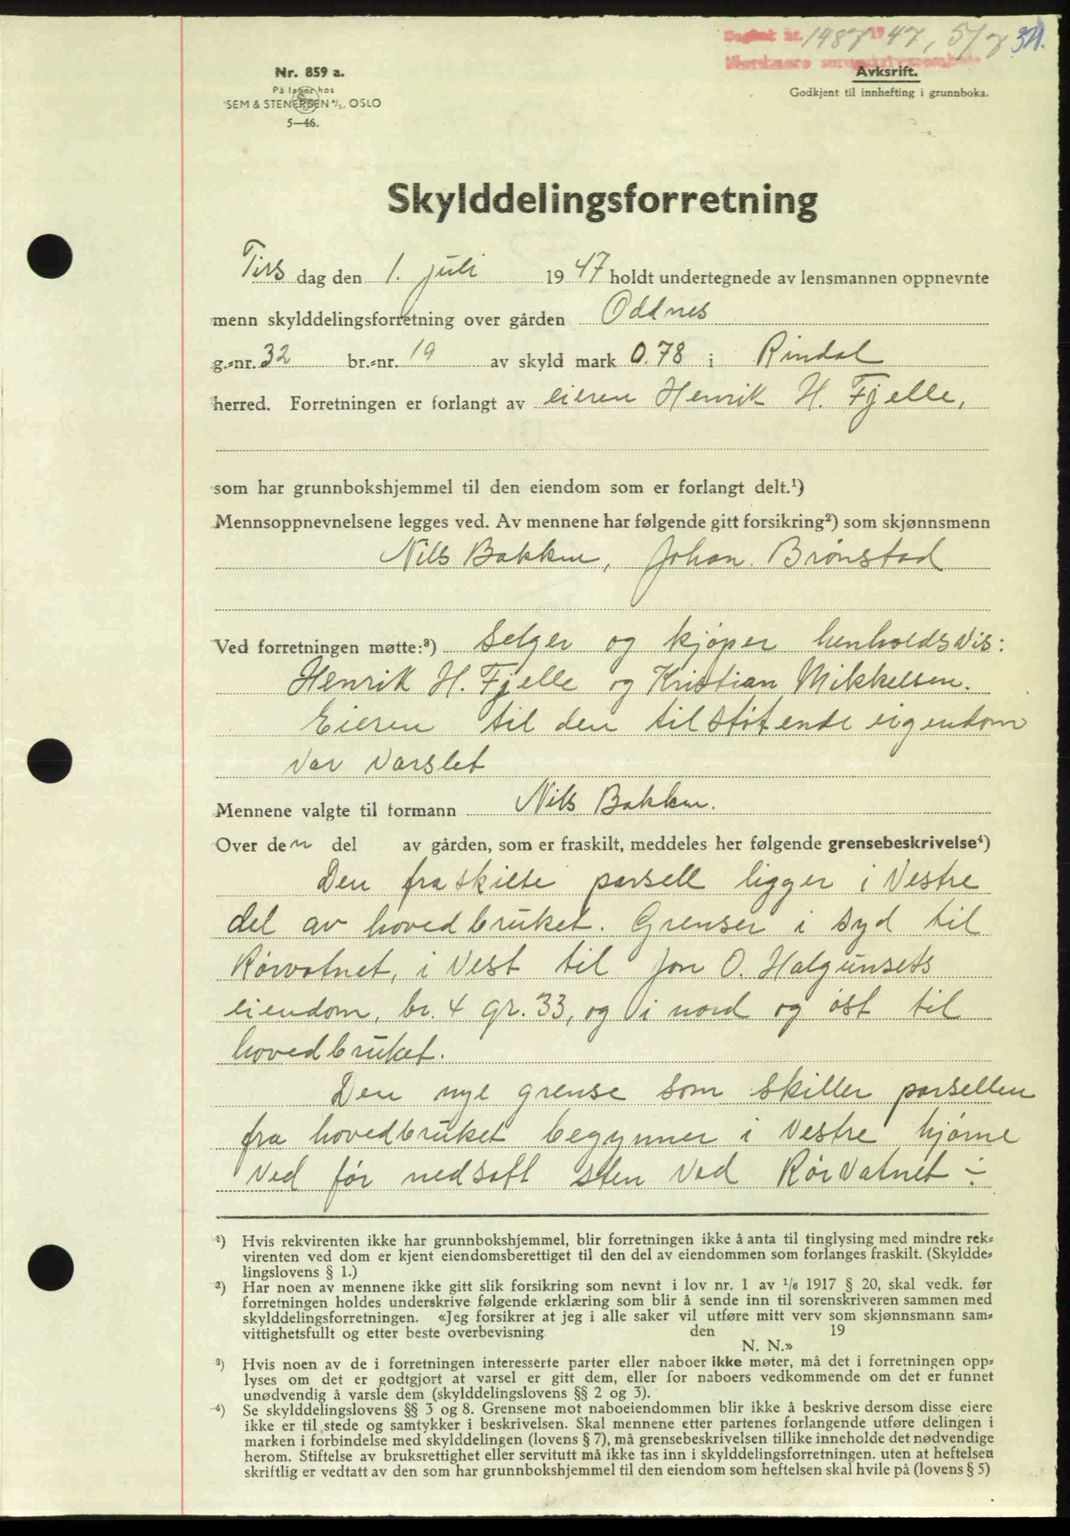 Dagbok nr. 1487 1947, 5/7 34.
Nr. 859 a.
På lager hos
SEM & STENERSEN A/S, OSLO
5—46.
Avksrift.
Godkjent til innhefting i grunnboka.
Skylddelingsforretning
Tirs dag den 1. juli 1947 holdt undertegnede av lensmannen oppnevnte
menn skylddelingsforretning over gården Oddnes
g.-nr. 32 br.-nr. 19 av skyld mark 0.78 i Rindal
herred. Forretningen er forlangt av eieren Henrik H. Fjelle,
som har grunnbokshjemmel til den eiendom som er forlangt delt.¹)
Mennsoppnevnelsene legges ved. Av mennene har følgende gitt forsikring²) som skjønnsmenn
Nils Bakken, Johan. Brønstad
Ved forretningen møtte:³) Selger og kjøper henholdsvis:
Henrik H. Fjelle og Kristian Mikkelsen.
Eieren til den tilstøtende eigendom
var varslet
Mennene valgte til formann Nils Bakken.
Over den del av gården, som er fraskilt, meddeles her følgende grensebeskrivelse⁴)
Den fraskilte parsell ligger i Vestre
del av hovedbruket. Grenser i syd til
Rørvatnet, i Vest til Jon O. Halgunsets
eiendom, br. 4 gr. 33, og i nord og øst til
hovedbruket.
Den nye grense som skiller parsellen
fra hovedbruket begynner i Vestre hjørne
ved før nedsatt sten ved Rørvatnet ÷
¹) Hvis rekvirenten ikke har grunnbokshjemmel, blir forretningen ikke å anta til tinglysing med mindre rek-
virenten ved dom er kjent eiendomsberettiget til den del av eiendommen som forlanges fraskilt. (Skyldde-
lingslovens § 1.)
²) Har noen av mennene ikke gitt slik forsikring som nevnt i lov nr. 1 av 1/6 1917 § 20, skal vedk. før
forretningen holdes underskrive følgende erklæring som blir å sende inn til sorenskriveren sammen med
skylddelingsforretningen. «Jeg forsikrer at jeg i alle saker vil utføre mitt verv som skjønnsmann sam-
vittighetsfullt og etter beste overbevisning den 19
N. N.»
³) Hvis noen av de i forretningen interesserte parter eller naboer ikke møter, må det i forretningen opp-
lyses om det er godtgjort at varsel er gitt dem, eller for naboers vedkommende om det er funnet
unødvendig å varsle dem (skylddelingslovens §§ 2 og 3).
⁴) Se skylddelingslovens §§ 3 og 8. Grensene mot naboeiendommen blir ikke å beskrive dersom disse eiere
ikke er til stede og samtykker i beskrivelsen. Skal mennene etter partenes forlangende utføre delingen i
marken i forbindelse med skylddelingen (lovens § 7), må grensebeskrivelsen tillike inneholde det nødvendige
herom. Stiftelse av bruksrettighet eller servitutt må ikke tas inn i skylddelingsforretningen. uten at heftelsen
skriftlig er vedtatt av den som har grunnbokshjemmel til den eiendom som heftelsen skal hvile på (lovens § 5)